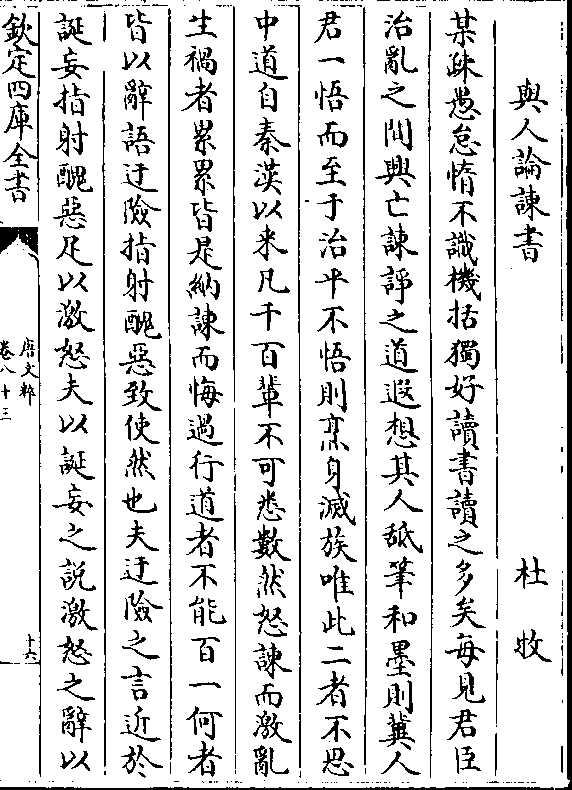 與人論諫書 杜牧
某疎愚怠惰不識機括獨好讀書讀之多矣每見君臣
治亂之間興亡諫諍之道遐想其人舐筆和墨則冀人
君一悟而至于治平不悟則烹身滅族唯此二者不思
中道自秦漢以来凡千百輩不可悉數然怒諫而激亂
生禍者累累皆是納諫而悔過行道者不能百一何者
皆以辭語迂險指射醜惡致使然也夫迂險之言近於
誕妄指射醜惡足以激怒夫以誕妄之説激怒之辭以
欽定四庫全書
唐文粹
卷八十三
十六